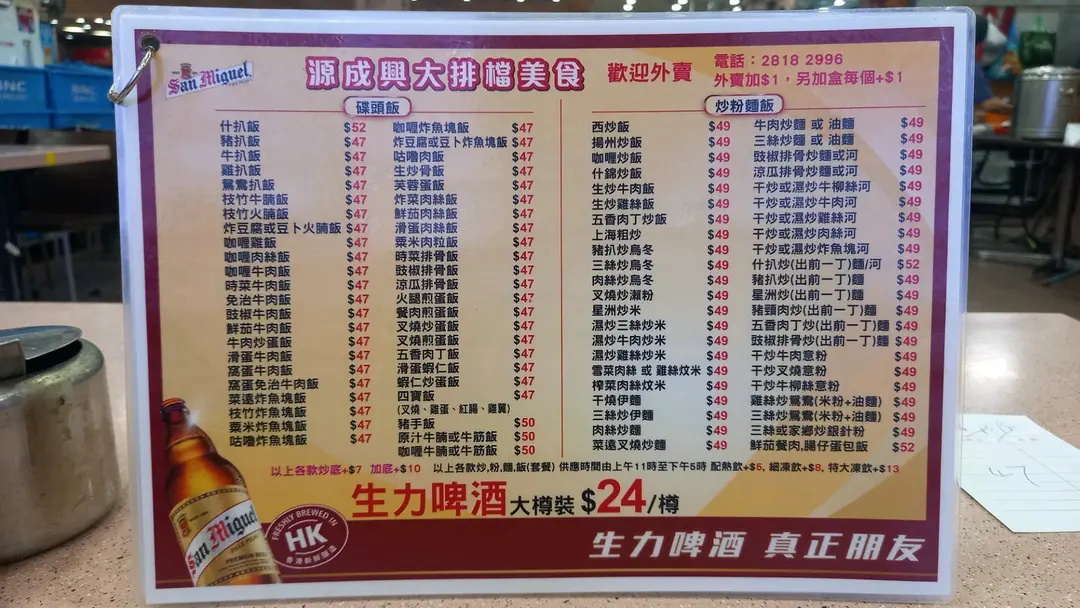 San Miguel
源成興大排檔美食
歡迎外賣
電話：2818 2996
外賣加$1，另加盒每個+$1
碟頭飯
什扒飯 $52
豬扒飯 $47
牛扒飯 $47
雞扒飯 $47
鴛鴦扒飯 $47
枝竹牛腩飯 $47
枝竹火腩飯 $47
炸豆腐或豆卜火腩飯 $47
咖喱雞飯 $47
咖喱肉絲飯 $47
咖喱牛肉飯 $47
時菜牛肉飯 $47
免治牛肉飯 $47
豉椒牛肉飯 $47
鮮茄牛肉飯 $47
牛肉炒蛋飯 $47
滑蛋牛肉飯 $47
窩蛋牛肉飯 $47
窩蛋免治牛肉飯 $47
菜遠炸魚塊飯 $47
枝竹炸魚塊飯 $47
粟米炸魚塊飯 $47
咕嚕炸魚塊飯 $47
咖喱炸魚塊飯 $47
炸豆腐或豆卜炸魚塊飯 $47
咕嚕肉飯 $47
生炒骨飯 $47
芙蓉蛋飯 $47
炸菜肉絲飯 $47
鮮茄肉絲飯 $47
滑蛋肉絲飯 $47
粟米肉粒飯 $47
時菜排骨飯 $47
豉椒排骨飯 $47
涼瓜排骨飯 $47
火腿煎蛋飯 $47
餐肉煎蛋飯 $47
叉燒炒蛋飯 $47
叉燒煎蛋飯 $47
五香肉丁飯 $47
滑蛋蝦仁飯 $47
蝦仁炒蛋飯 $47
四寶飯 $47
(叉燒、雞蛋、紅腸、雞翼)
豬手飯 $50
原汁牛腩或牛筋飯 $50
咖喱牛腩或牛筋飯 $50
炒粉麵飯
西炒飯 $49
揚州炒飯 $49
咖喱炒飯 $49
什錦炒飯 $49
生炒牛肉飯 $49
生炒雞絲飯 $49
五香肉丁炒飯 $49
上海粗炒 $49
豬扒炒烏冬 $49
三絲炒烏冬 $49
肉絲炒烏冬 $49
叉燒炒瀨粉 $49
星洲炒米 $49
濕炒三絲炒米 $49
濕炒牛肉炒米 $49
濕炒雞絲炒米 $49
雪菜肉絲 或 雞絲炆米 $49
榨菜肉絲炆米 $49
干燒伊麵 $49
三絲炒伊麵 $49
肉絲炒麵 $49
菜遠叉燒炒麵 $49
牛肉炒麵 或 油麵 $49
三絲炒麵 或 油麵 $49
豉椒排骨炒麵或河 $49
涼瓜排骨炒麵或河 $49
干炒或濕炒牛柳絲河 $49
干炒或濕炒牛肉河 $49
干炒或濕炒雞絲河 $49
干炒或濕炒肉絲河 $49
干炒或濕炒炸魚塊河 $49
什扒炒(出前一丁)麵/河 $52
豬扒炒(出前一丁)麵 $49
星洲炒(出前一丁)麵 $49
豬頸肉炒(出前一丁)麵 $49
五香肉丁炒(出前一丁)麵 $49
豉椒排骨炒(出前一丁)麵 $49
干炒牛肉意粉 $49
干炒叉燒意粉 $49
干炒牛柳絲意粉 $49
雞絲炒鴛鴦(米粉+油麵) $49
三絲炒鴛鴦(米粉+油麵) $49
三絲或家鄉炒銀針粉 $49
鮮茄餐肉,腸仔蛋包飯 $52
以上各款炒底+$7 加底+$10 以上各款炒,粉,麵,飯(套餐) 供應時間由上午11時至下午5時 配熱飲+$5, 細凍飲+$8, 特大凍飲+$13
生力啤酒 大樽裝 $24/樽
San Miguel
FRESHLY BREWED IN
HK
香港新鮮釀造
生力啤酒 真正朋友
47